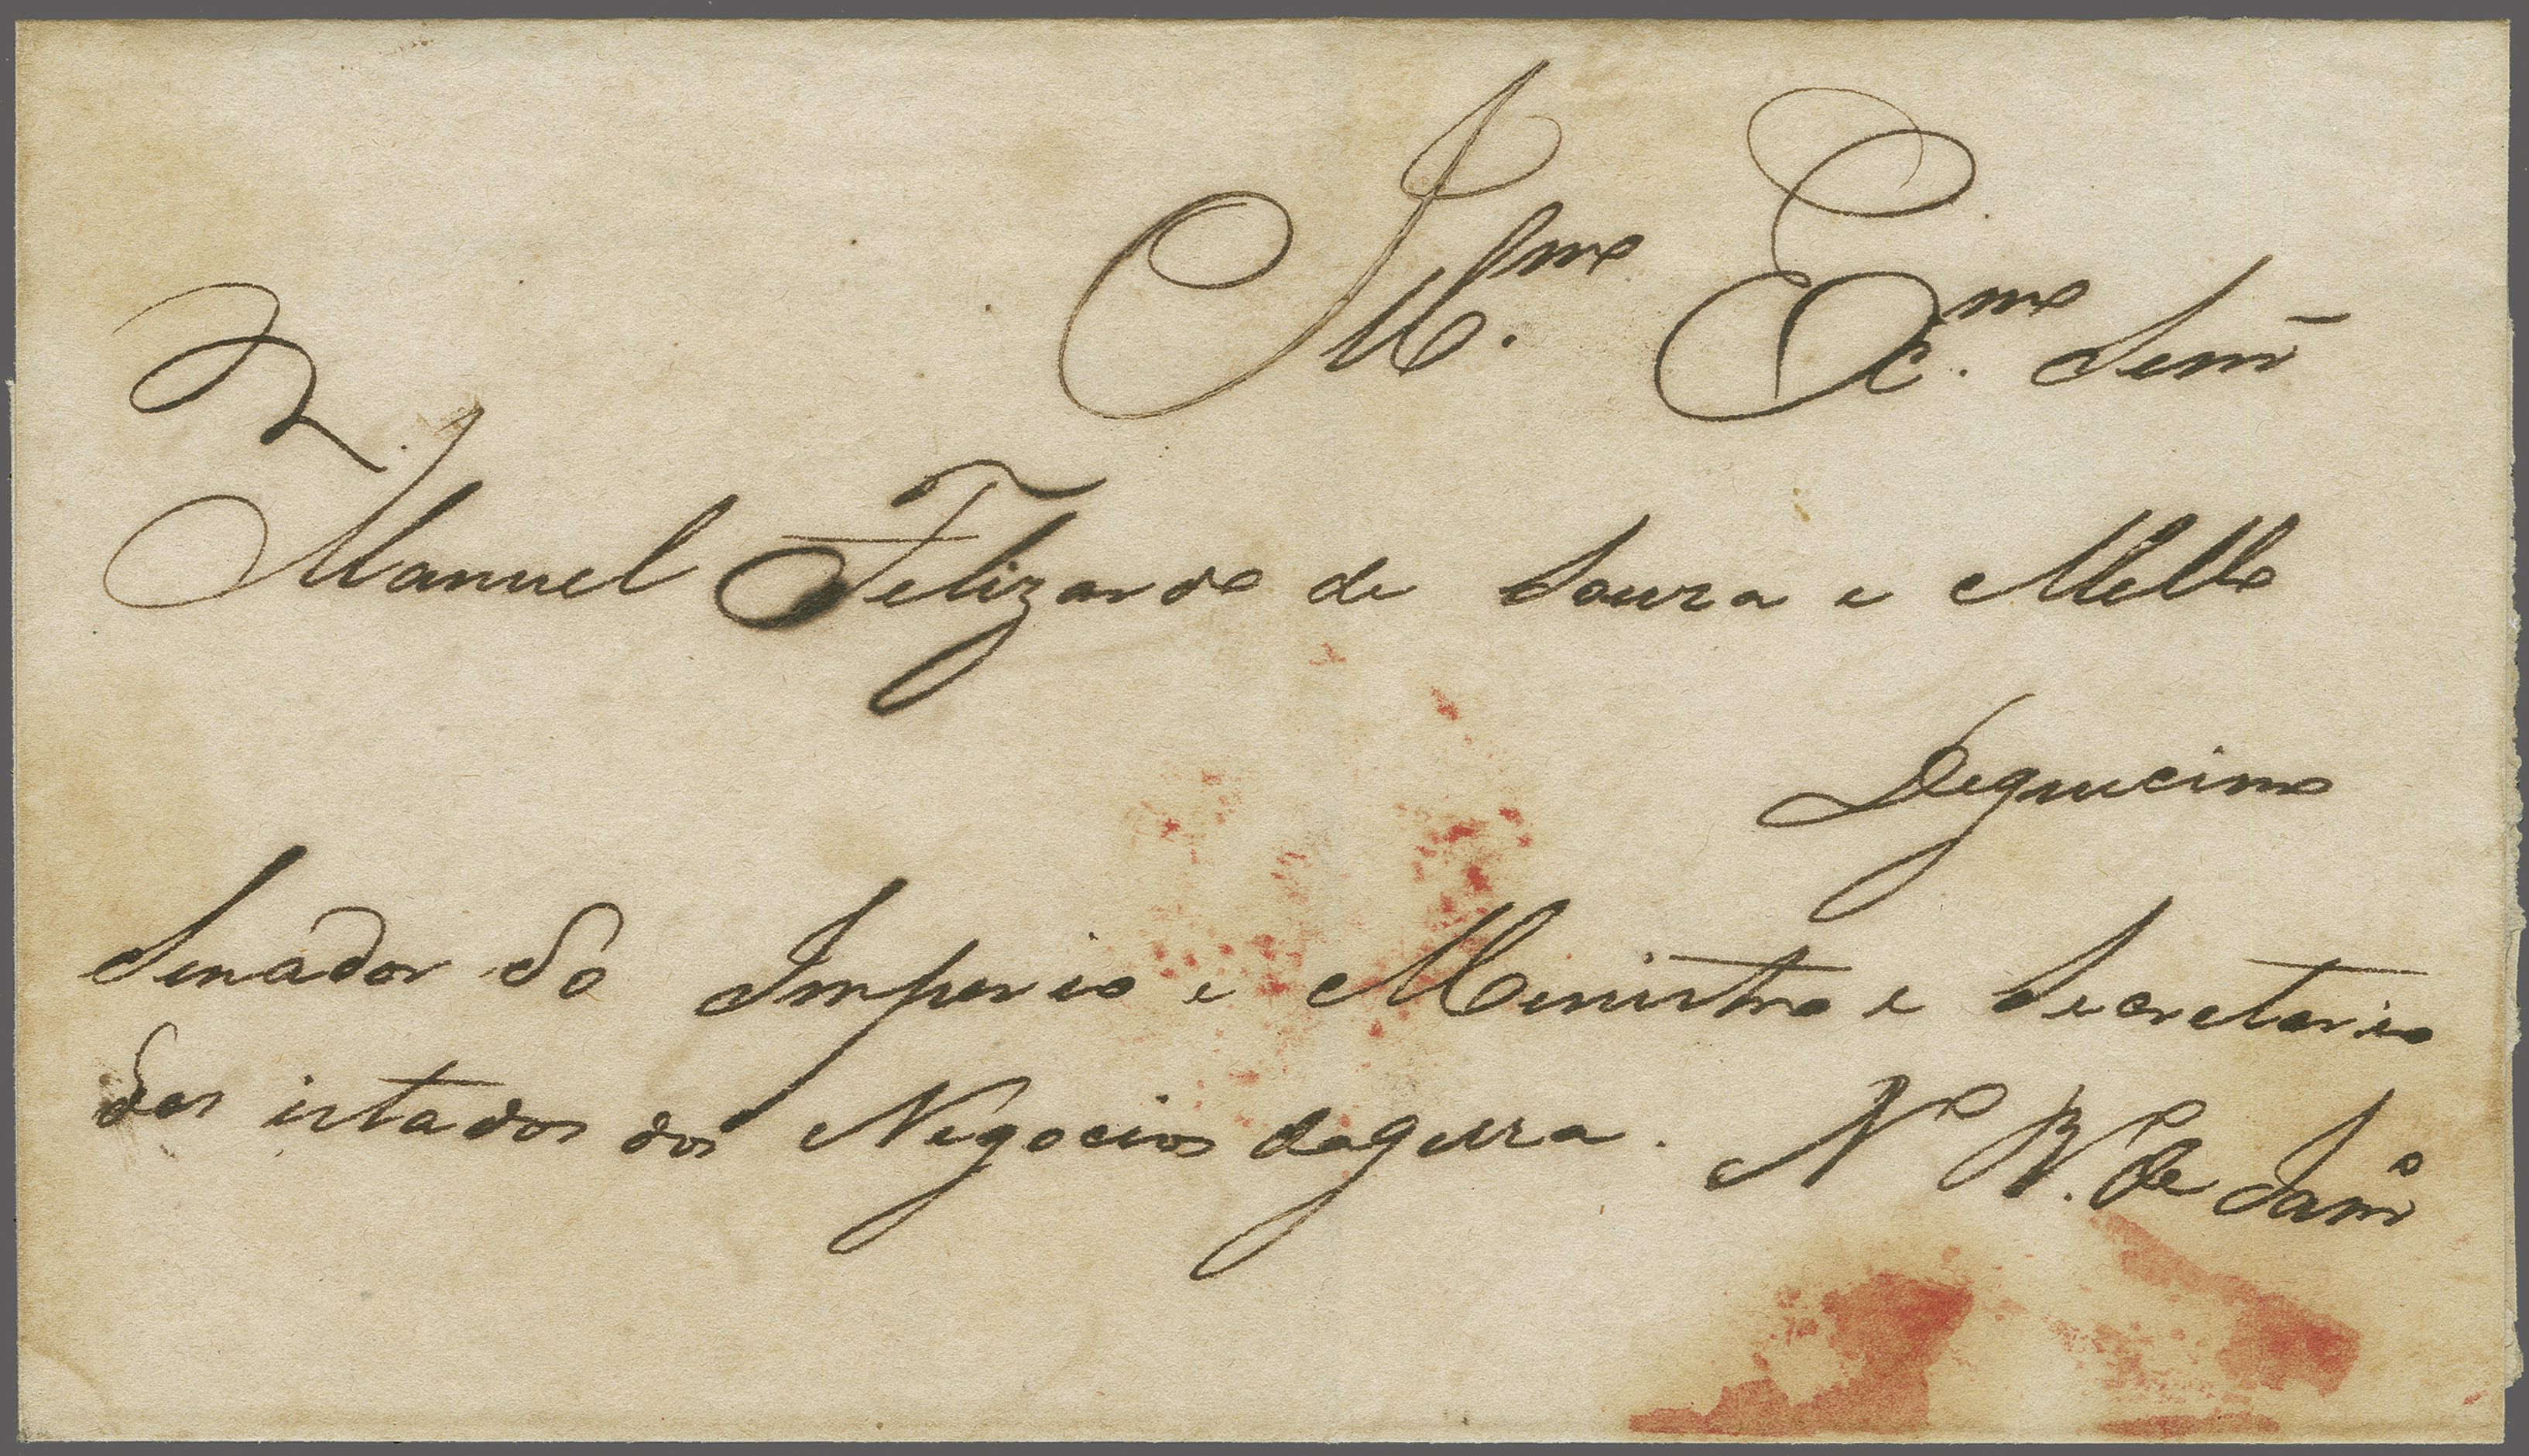 Ill.mo Exc.mo Senr
Manuel Felizardo de Souza e Mello
Degnicimo
Senador do Imperio e Menistro e Secretario
dos istados dos Negocios dagerra. No R. de Janro